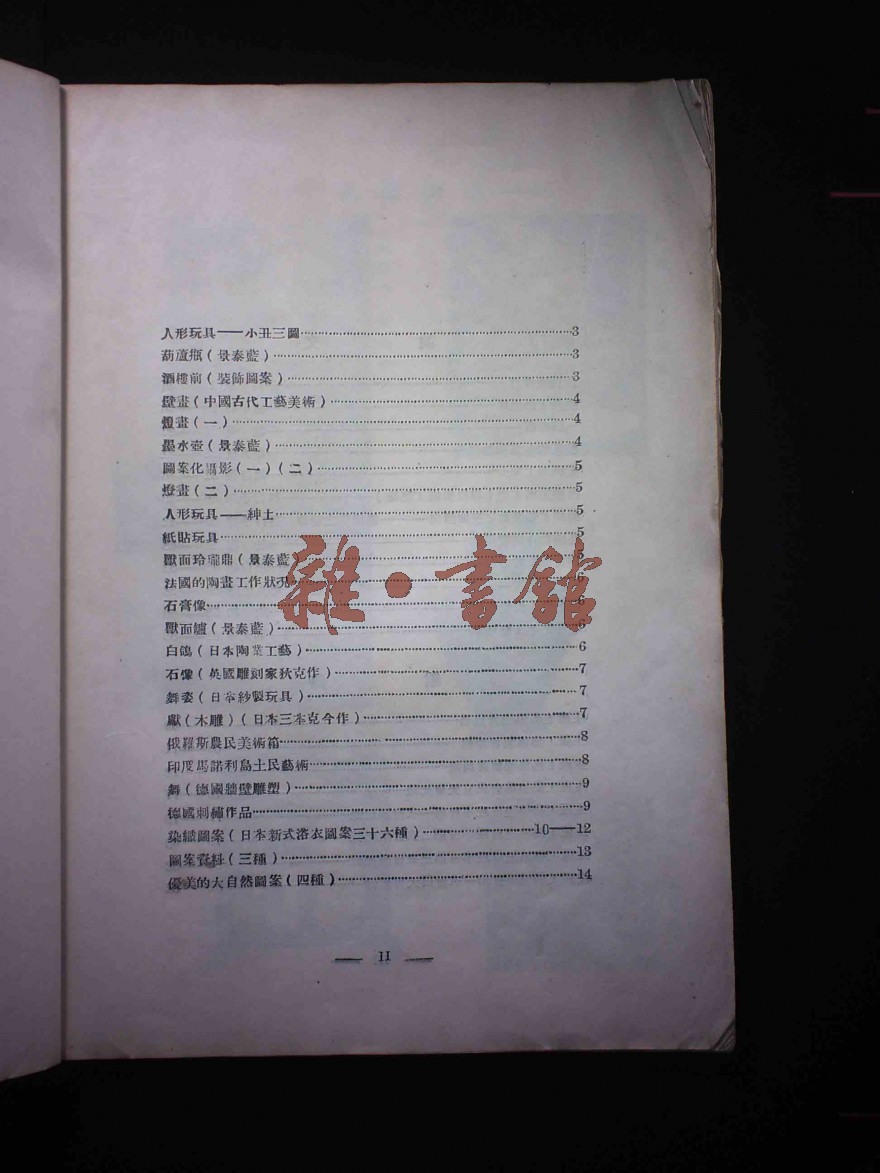 人形玩具——小丑三圖……3
葫蘆瓶(景泰藍)……3
酒樓前(裝飾圖案)……3
壁畫(中國古代工藝美術)……4
燈畫(一)……4
墨水壺(景泰藍)……4
圖案化攝影(一)(二)……5
燈畫(二)……5
人形玩具——紳士……5
紙貼玩具……5
獸面玲瓏鼎(景泰藍)……5
法國的陶畫工作狀況……6
石膏像……6
獸面爐(景泰藍)……6
白鴿(日本陶業工藝)……6
石像(英國雕刻家狄克作)……7
舞姿(日本紗製玩具)……7
獻(木雕)(日本三本克今作)……7
俄羅斯農民美術箱……8
印度馬諾利島土民藝術……8
舞(德國牆壁雕塑)……9
德國刺繡作品……9
染織圖案(日本新式浴衣圖案三十六種)……10——12
圖案資料(三種)……13
優美的大自然圖案(四種)……14
— II —
雜·書館